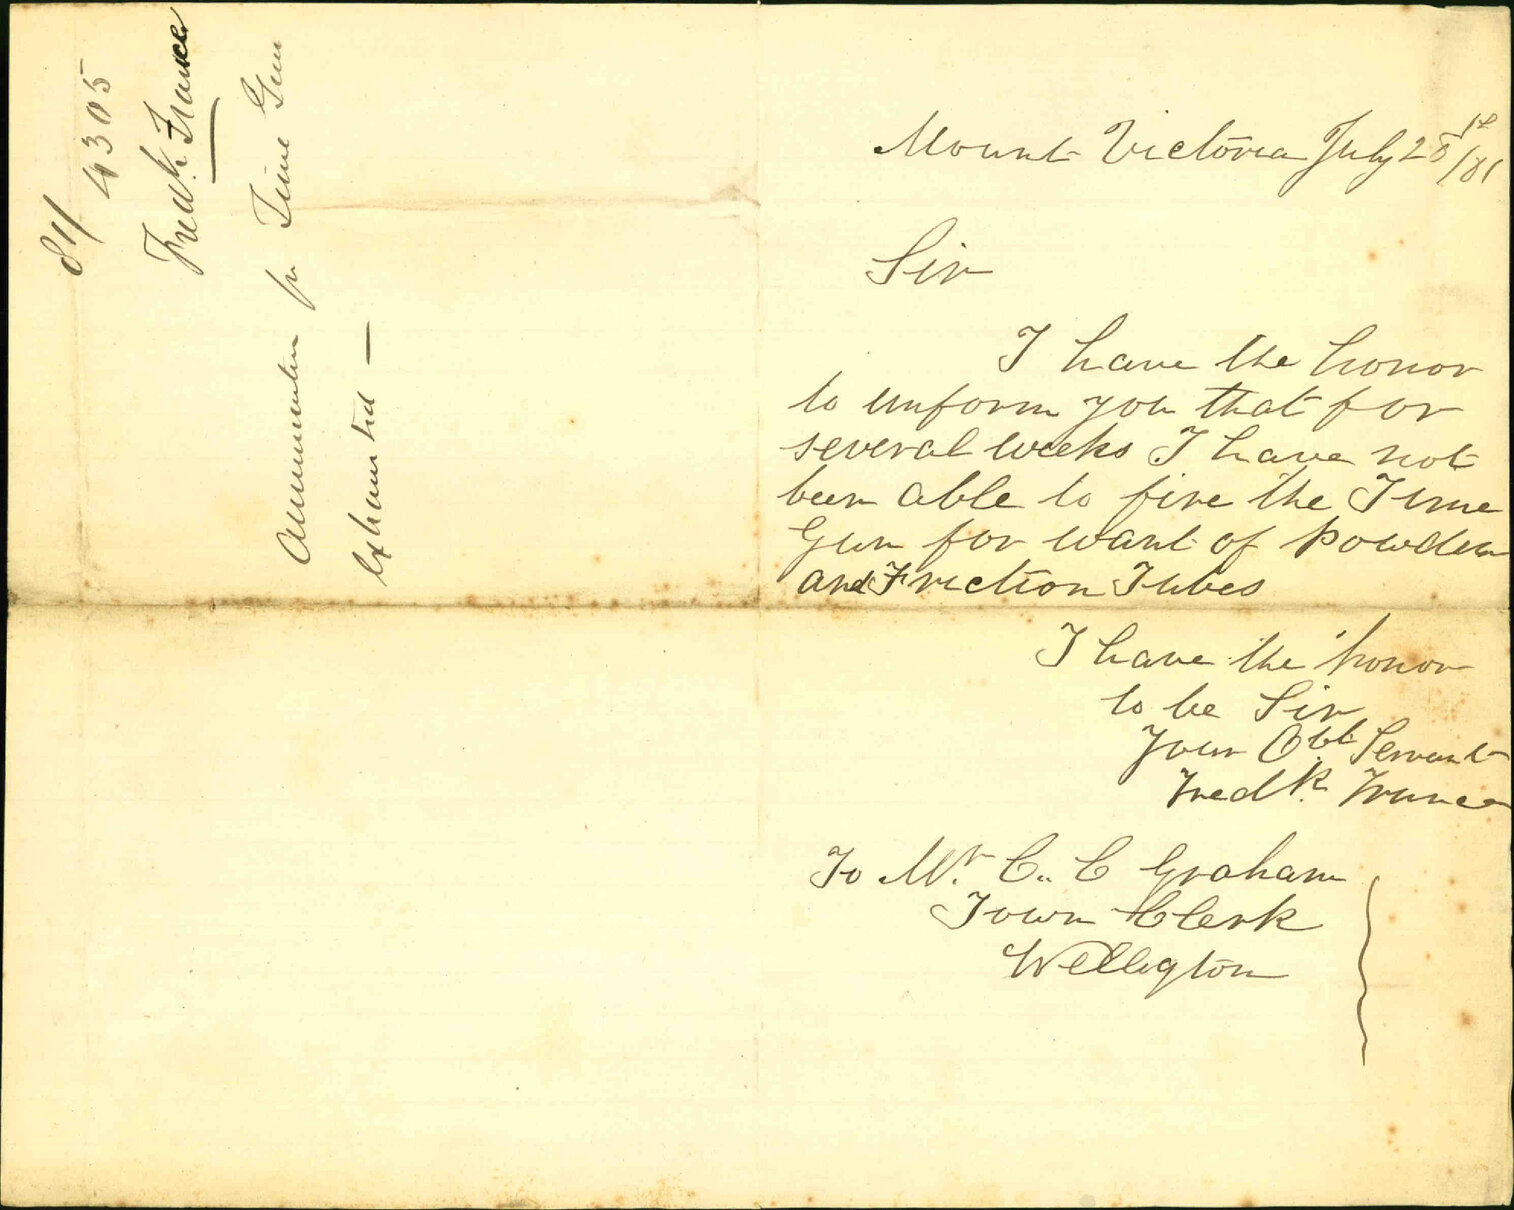 81/
4305
Fredk. France
Ammunition for Time Gun
Exhausted —
Mount Victoria July 28th/81
Sir
I have the honor
to unform you that for
several weeks I have not
been able to fire the Time
Gun for want of Powder
and Friction Tubes
I have the honor
to be Sir
Your Obt Servant
Fredk. France
To Mr. C. C Graham
Town Clerk
Welligton